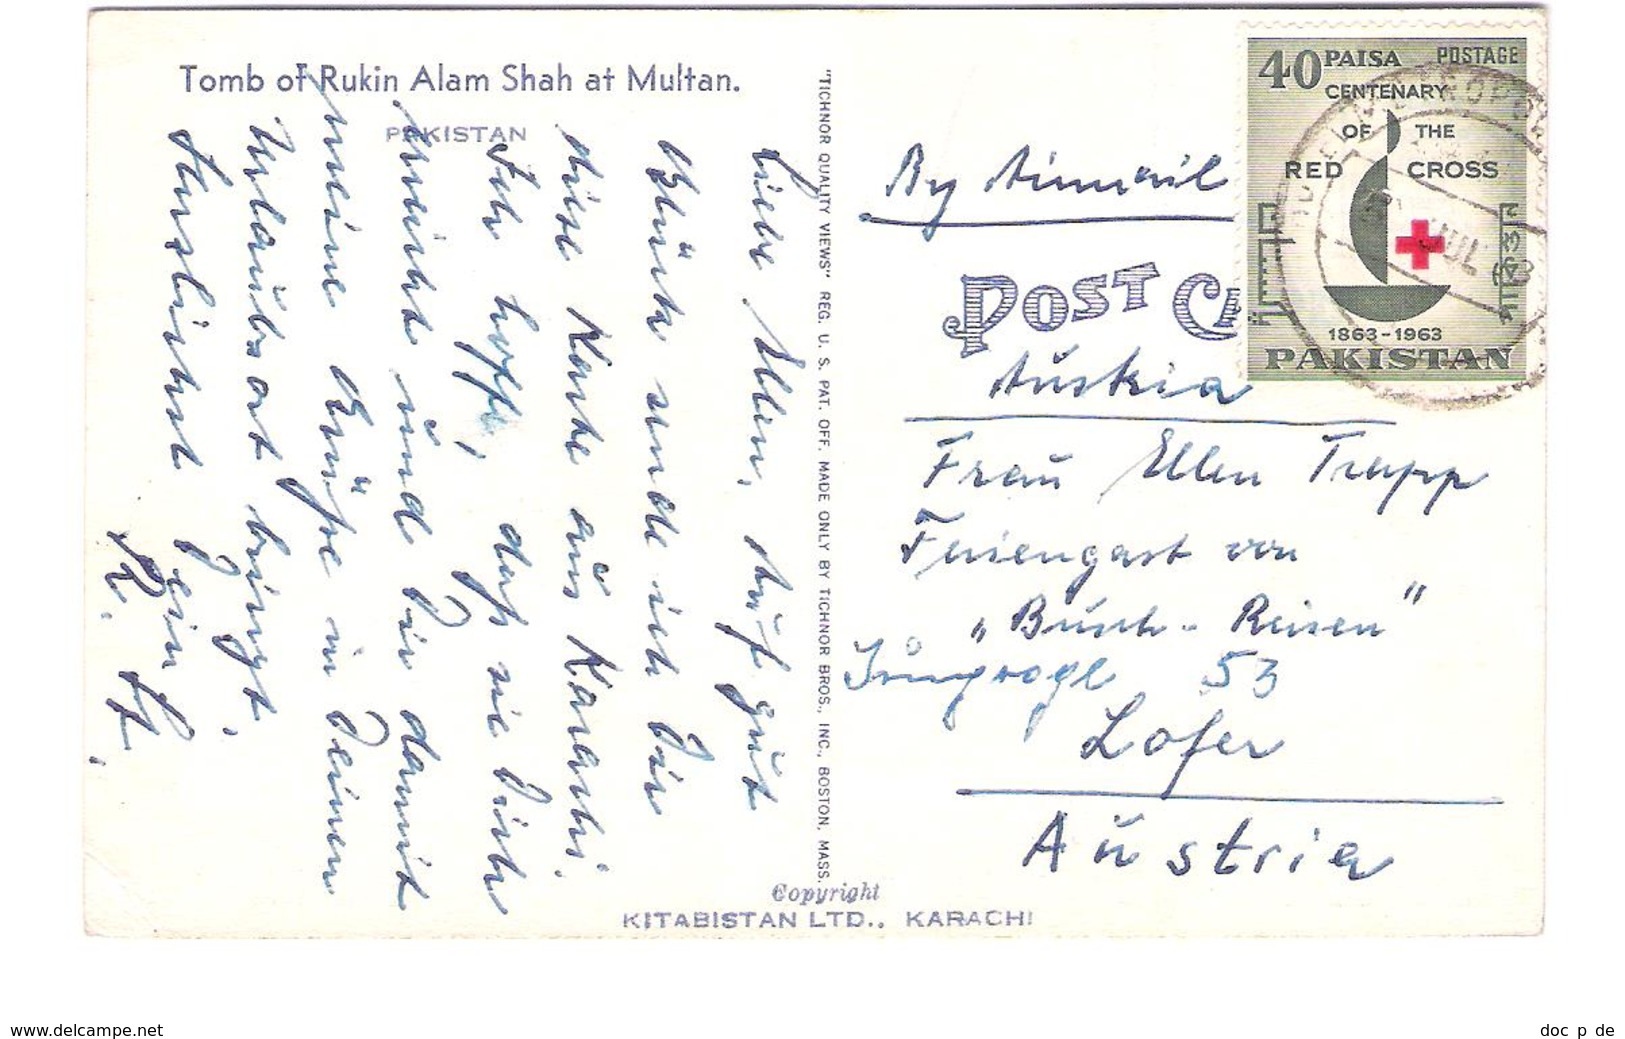 Tomb of Rukin Alam Shah at Multan.
PAKISTAN
Liebe Ellen, auf gut
Glück sende ich Dir
diese Karte aus Karachi.
Ich hoffe, daß sie Dich
erreicht und Dir damit
meine Grüße in Deinen
Urlaubsort bringt.
Herzlichst Dein
"TICHNOR QUALITY VIEWS" REG. U. S. PAT. OFF. MADE ONLY BY TICHNOR BROS., INC., BOSTON, MASS.
Copyright
KITABISTAN LTD., KARACHI
By Airmail
POST CA
40 PAISA POSTAGE
CENTENARY
OF THE
RED CROSS
1863-1963
PAKISTAN
JUL 63
Austria
Frau Ellen Trapp
Feriengast von
„Busch-Reisen"
53
Lofer
Austria
www.delcampe.net
doc p de